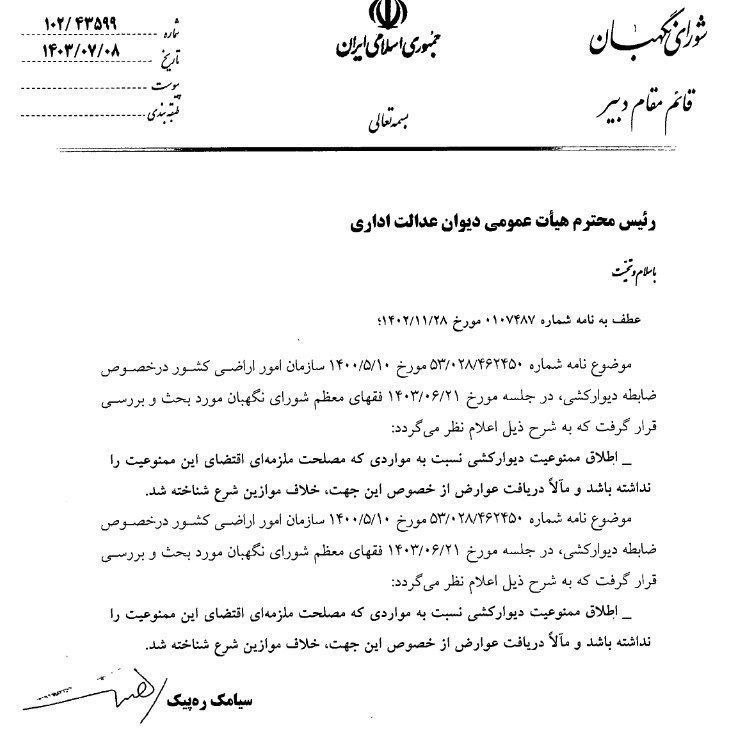 شورای نگهبان
قائم مقام دبیر
جمهوری اسلامی ایران
بسمه تعالی
شماره ۱۰۲/۴۳۵۹۹
تاریخ ۱۴۰۳/۰۷/۰۸
پیوست
طبقه‌بندی
رئیس محترم هیأت عمومی دیوان عدالت اداری
باسلام وتحیت
عطف به نامه شماره ۰۱۰۷۴۸۷ مورخ ۱۴۰۲/۱۱/۲۸؛
موضوع نامه شماره ۵۳/۰۲۸/۴۶۲۴۵۰ مورخ ۱۴۰۰/۵/۱۰ سازمان امور اراضی کشور درخصوص
ضابطه دیوارکشی، در جلسه مورخ ۱۴۰۳/۰۶/۲۱ فقهای معظم شورای نگهبان مورد بحث و بررسی
قرار گرفت که به شرح ذیل اعلام نظر می‌گردد:
_ اطلاق ممنوعیت دیوارکشی نسبت به مواردی که مصلحت ملزمه‌ای اقتضای این ممنوعیت را
نداشته باشد و مآلاً دریافت عوارض از خصوص این جهت، خلاف موازین شرع شناخته شد.
موضوع نامه شماره ۵۳/۰۲۸/۴۶۲۴۵۰ مورخ ۱۴۰۰/۵/۱۰ سازمان امور اراضی کشور درخصوص
ضابطه دیوارکشی، در جلسه مورخ ۱۴۰۳/۰۶/۲۱ فقهای معظم شورای نگهبان مورد بحث و بررسی
قرار گرفت که به شرح ذیل اعلام نظر می‌گردد:
_ اطلاق ممنوعیت دیوارکشی نسبت به مواردی که مصلحت ملزمه‌ای اقتضای این ممنوعیت را
نداشته باشد و مآلاً دریافت عوارض از خصوص این جهت، خلاف موازین شرع شناخته شد.
سیامک ره‌پیک